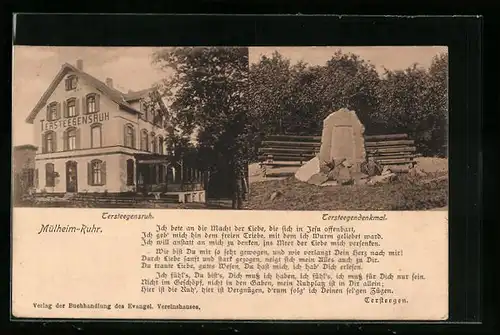 TERSTEEGENSRUH
Tersteegensruh.
Tersteegendenkmal.
Mülheim-Ruhr.
Ich bete an die Macht der Liebe, die sich in Jesu offenbart,
Ich geb' mich hin dem freien Triebe, mit dem ich Wurm geliebet ward.
Ich will anstatt an mich zu denken, ins Meer der Liebe mich versenken.
Wie bist Du mir so sehr gewogen, und wie verlangt Dein Herz nach mir!
Durch Liebe sanft und stark gezogen, neigt sich mein Alles auch zu Dir.
Du traute Liebe, gutes Wesen, Du hast mich, ich hab' Dich erlesen.
Ich fühl's, Du bist's, Dich muß ich haben, ich fühl's, ich muß für Dich nur sein.
Nicht im Geschöpf, nicht in den Gaben, mein Ruhplatz ist in Dir allein;
Hier ist die Ruh', hier ist Vergnügen, d'rum folg' ich Deinen sel'gen Zügen.
Tersteegen.
Verlag der Buchhandlung des Evangel. Vereinshauses.